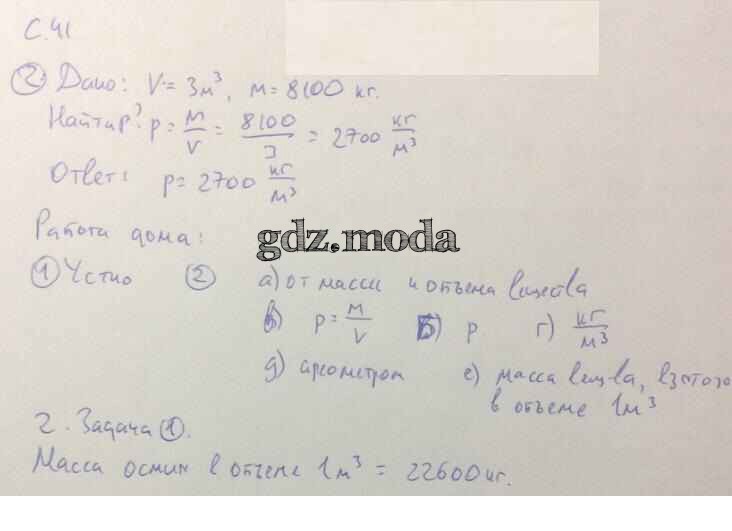 С. 41
② Дано: V = 3 м³, м = 8100 кг.
Найти р? р = м/V = 8100/3 = 2700 кг/м³
Ответ: р = 2700 кг/м³
Работа дома:
gdz.moda
① Устно ② а) от массы и объема вещества
в) р = м/V б) р г) кг/м³
д) ареометром е) масса вещ-ва, взятого
в объеме 1 м³
2. Задача ①.
Масса осмия в объеме 1 м³ = 22600 кг.